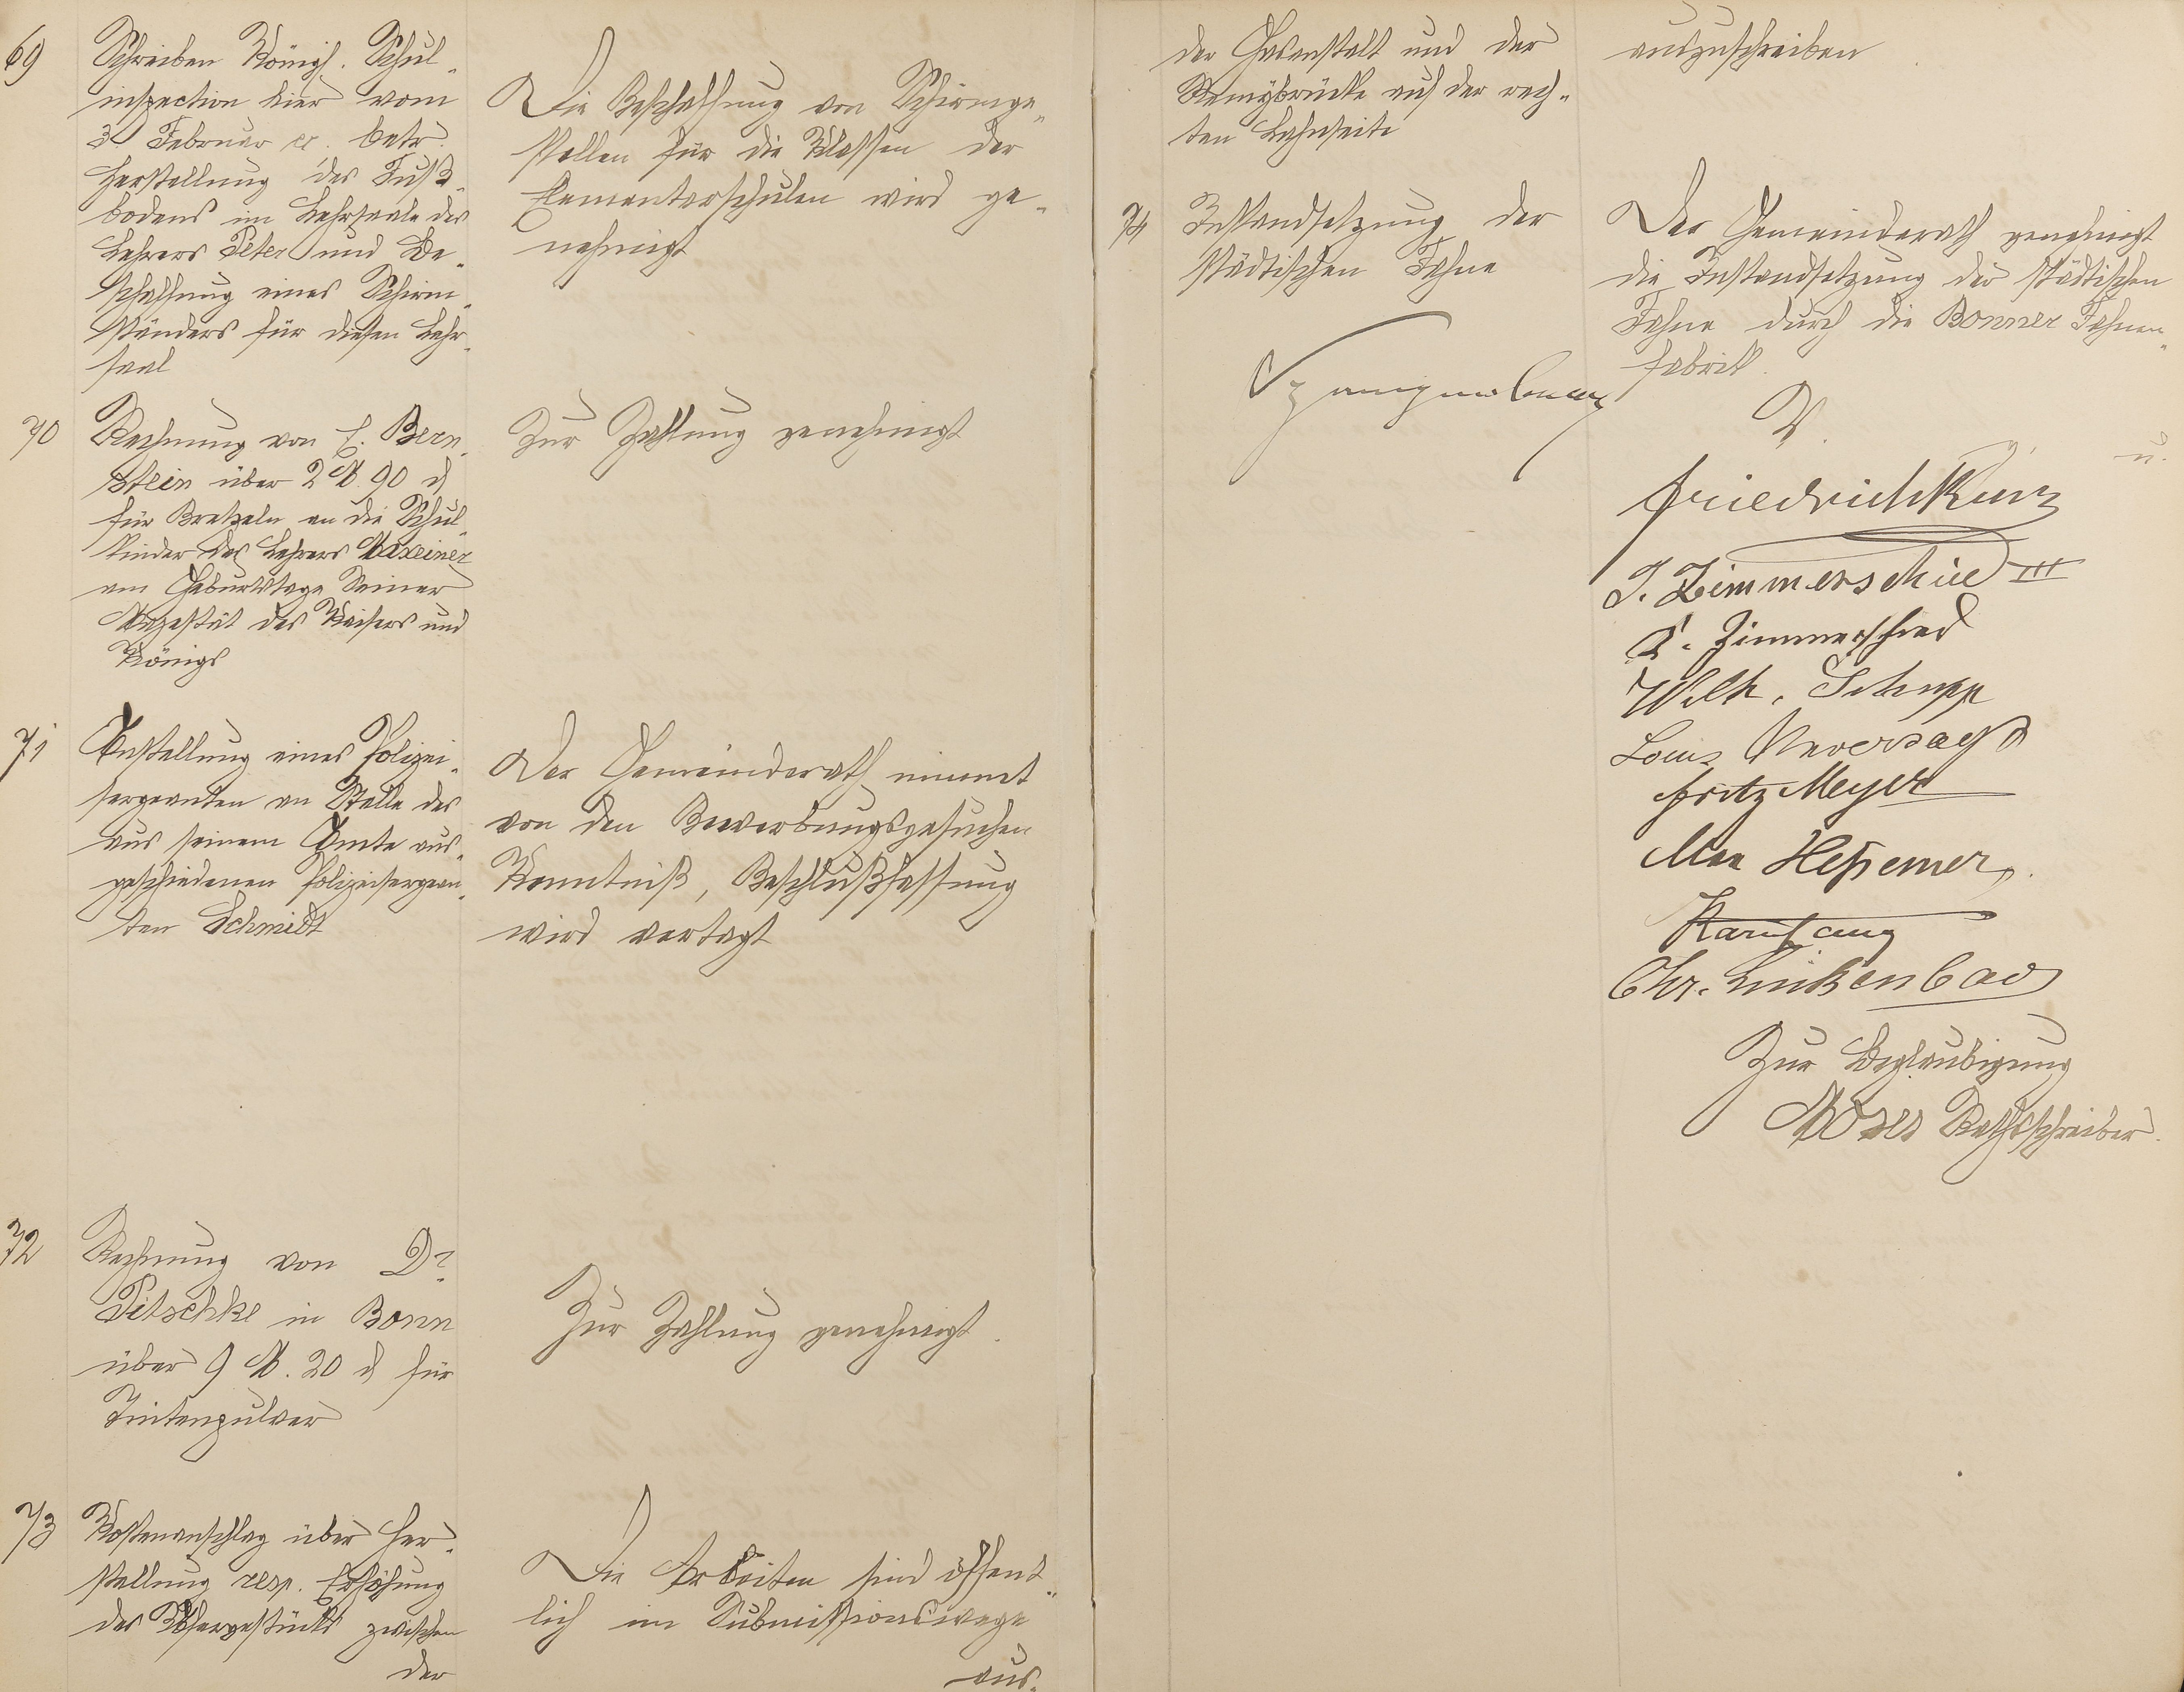 69
Schreiben Königl. Schul-
inspection hier vom
3 Februar cr. betr.
Herstellung des Fuß-
bodens im Lehrsaale des
Lehrers Peter und Be-
schaffung eines Schirm-
ständers für diesen Lehr-
saal
Die Beschaffung von Schirmge-
stellen für die Klassen der
Elementarschulen wird ge-
nehmigt
70
Rechnung von E. Bern-
stein über 2 M. 90 d
für Bretzeln an die Schul-
kinder des Lehrers Maxeiner
am Geburtstage Seiner
Majestät des Kaisers und
Königs
Zur Zahlung genehmigt
71
Anstellung eines Polizei-
sergeanten an Stelle des
aus seinem Amte aus-
geschiedenen Polizeisergean-
ten Schmidt
Der Gemeinderath nimmt
von den Bewerbungsgesuchen
Kenntniß, Beschlußfassung
wird vertagt
72
Rechnung von Dr.
Pitschke in Bonn
über 9 M. 20 d für
Tintenpulver
Zur Zahlung genehmigt.
73
Kostenanschlag über Her-
stellung resp. Erhöhung
des zwischen
der
Die Arbeiten sind öffent-
lich im Submissionswege
aus-
der Gasanstalt und der
Remybrücke auf der rech-
ten Lahnseite
auszuschreiben
74
Instandsetzung der
städtischen Fahne
Der Gemeinderath genehmigt
die Instandsetzung der städtischen
Fahne durch die Bonner Fahnen-
fabrik.
V. g. u.
Friedrich Kurz
J. Zimmerschied III
A. Zimmerschied
Wilh. Schupp
Louis Unverzagt
Fritz Meyer
Max Heßemer
Chr. Linkenbach
Zur Beglaubigung
Moses Rathsschreiber.